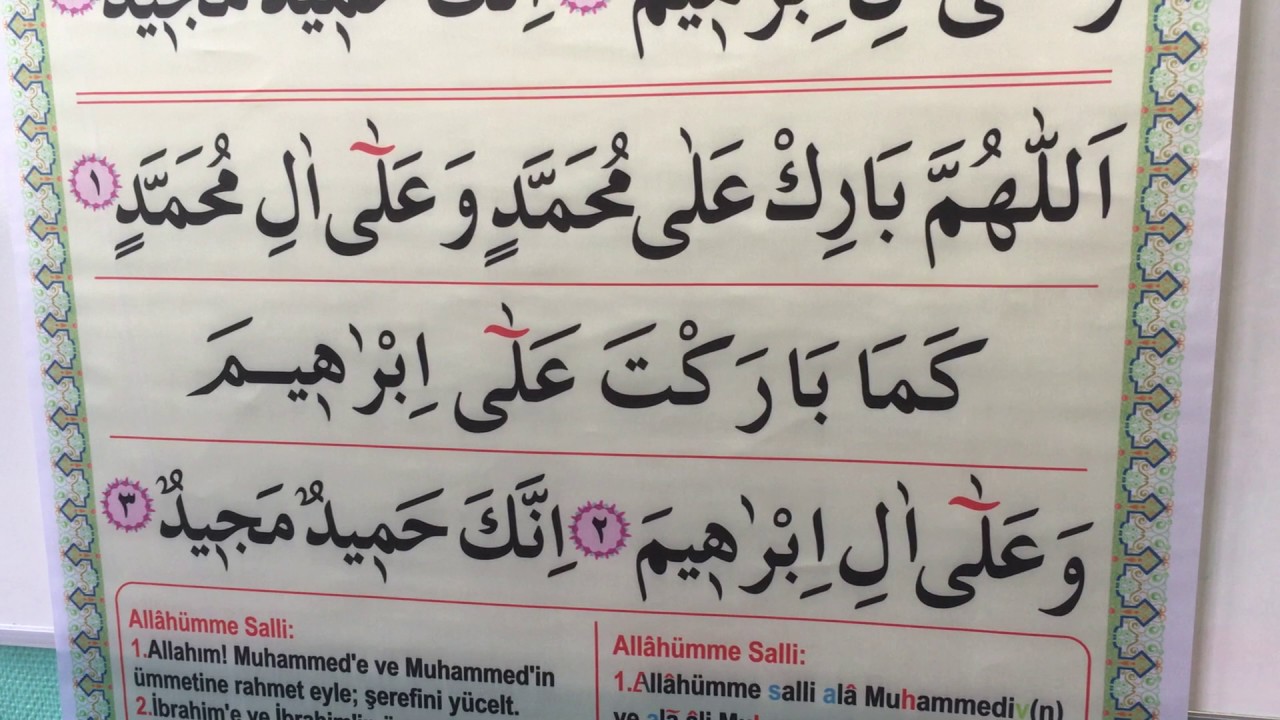 اَللّٰهُمَّ بَارِكْ عَلٰى مُحَمَّدٍ وَعَلٰٓى اٰلِ مُحَمَّدٍ ١
كَمَا بَارَكْتَ عَلٰٓى اِبْرٰهٖيمَ
وَعَلٰٓى اٰلِ اِبْرٰهٖيمَ ٢ اِنَّكَ حَمٖيدٌ مَجٖيدٌ ٣
Allâhümme Salli:
1.Allahım! Muhammed'e ve Muhammed'in
ümmetine rahmet eyle; şerefini yücelt.
2.İbrahim'e ve
Allâhümme Salli:
1.Allâhümme salli alâ Muhammediv(n)
ve alâ âli